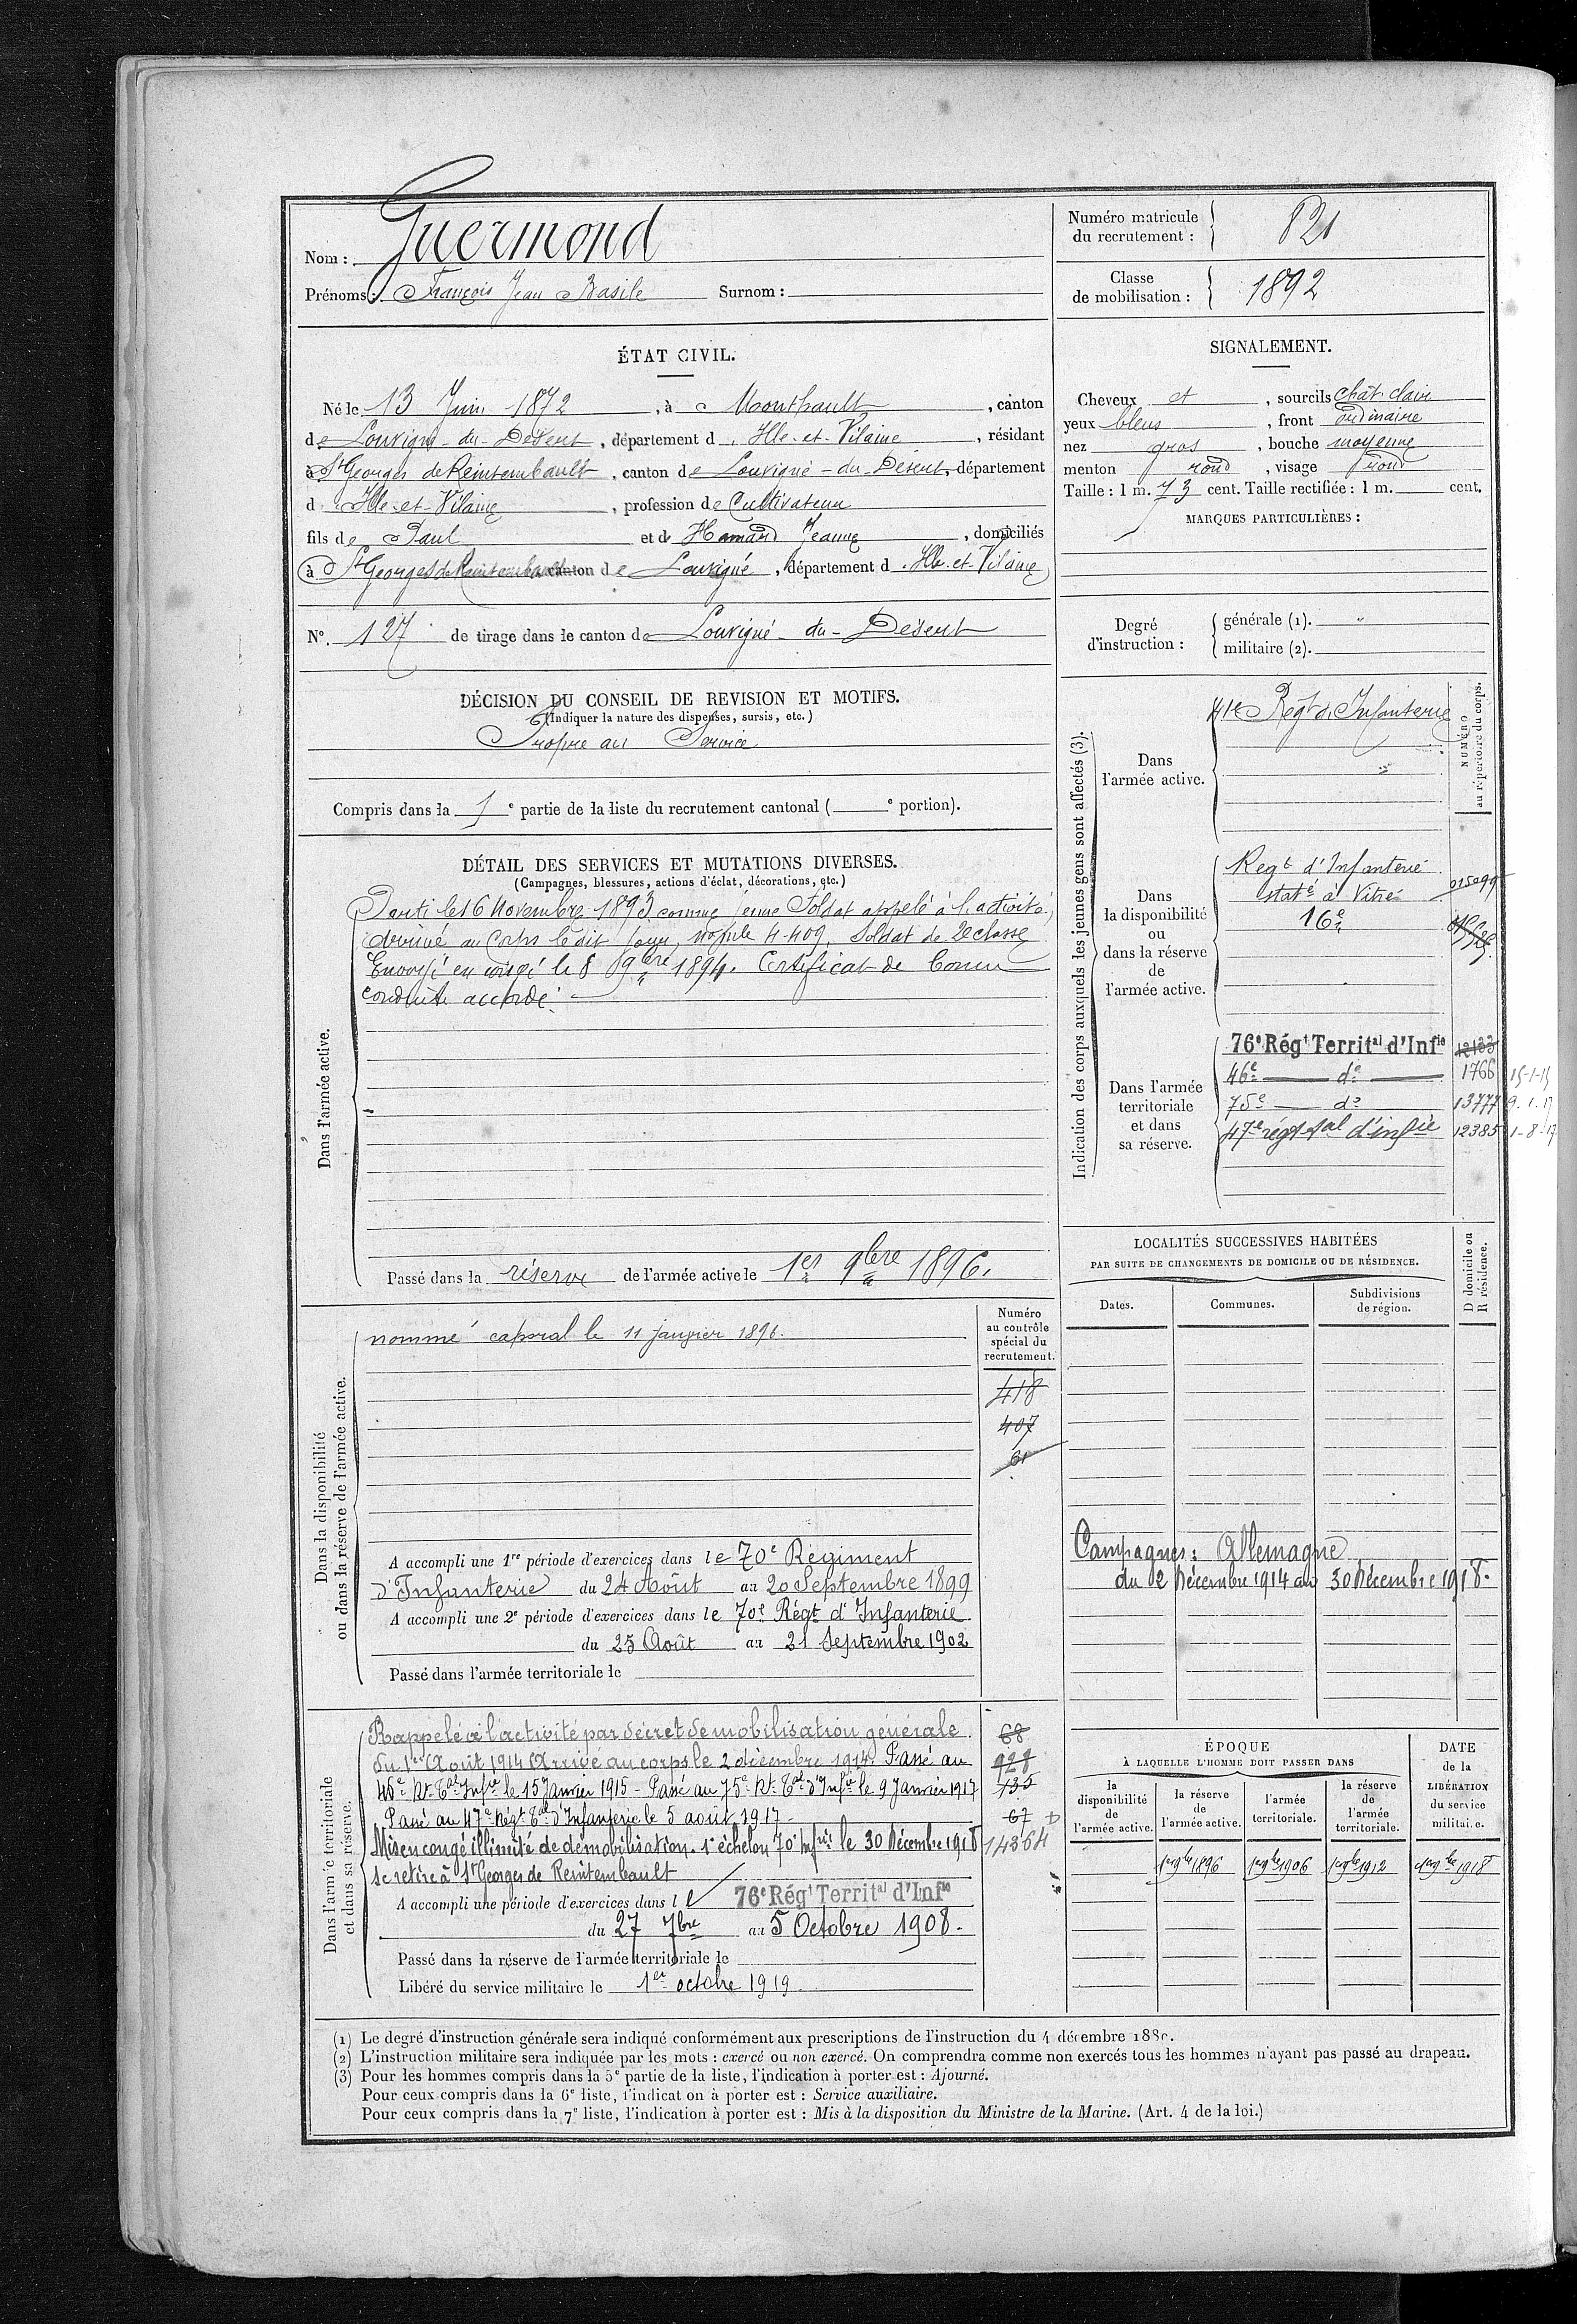 Nom : Guermond
Prénoms : François Jean Basile Surnom :
Numéro matricule du recrutement : 821
Classe de mobilisation : 1892
ÉTAT CIVIL.
Né le 13 Juin 1872, à Monthault, canton
de Louvigné-du-Désert, département d'Ille-et-Vilaine, résidant
à St Georges de Reintembault, canton de Louvigné-du-Désert, département
d'Ille-et-Vilaine, profession de Cultivateur
fils de Paul et de Hamard Jeanne, domiciliés
à St Georges de Reintembault canton de Louvigné, département d'Ille-et-Vilaine
N° 127 de tirage dans le canton de Louvigné-du-Désert
SIGNALEMENT.
Cheveux et, sourcils chât. clair
yeux bleus, front ordinaire
nez gros, bouche moyenne
menton rond, visage rond
Taille : 1 m. 73 cent. Taille rectifiée : 1 m. cent.
MARQUES PARTICULIÈRES :
Degré d'instruction : générale (1). "
militaire (2).
DÉCISION DU CONSEIL DE REVISION ET MOTIFS.
(Indiquer la nature des dispenses, sursis, etc.)
Propre au Service
Compris dans la 1e partie de la liste du recrutement cantonal ( e portion).
DÉTAIL DES SERVICES ET MUTATIONS DIVERSES.
(Campagnes, blessures, actions d'éclat, décorations, etc.)
Dans l'armée active.
Parti le 16 Novembre 1893 comme jeune Soldat appelé à l'activité,
arrivé au Corps le dit jour, 4409, Soldat de 2e classe
Envoyé en congé le 8 9bre 1894. Certificat de bonne
conduite accordé.
Passé dans la réserve de l'armée active le 1er 9bre 1896.
Dans la disponibilité
ou dans la réserve de l'armée active.
Numéro
au contrôle
spécial du
recrutement.
nommé caporal le 11 janvier 1896.
418
407
61
A accompli une 1re période d'exercices dans le 70e Régiment
d'Infanterie du 24 Août au 20 Septembre 1899
A accompli une 2e période d'exercices dans le 70e Régt d'Infanterie
du 25 Août au 21 Septembre 1902
Passé dans l'armée territoriale le
Dans l'armée territoriale
et dans sa réserve.
Rappelé à l'activité par décret de mobilisation générale
du 1er Août 1914 Arrivé au corps le 2 décembre 1914. Passé au
46e Rt Tal Infie le 15 Janvier 1915 - Passé au 75e Rt Tal d'Infie le 9 Janvier 1917
Passé au 47e Régt Tal d'Infanterie le 5 août 1917 -
Mis en congé illimité de démobilisation. 1er échelon 70e Infrie le 30 Décembre 1918
se retire à St Georges de Reintembault
68
928
67
14364
A accompli une période d'exercices dans le 76e Régt Territal d'Infie
du 27 7bre au 5 Octobre 1908.
Passé dans la réserve de l'armée territoriale le
Libéré du service militaire le 1er octobre 1919.
Indication des corps auxquels les jeunes gens sont affectés (3).
NUMÉRO
au répertoire du corps.
Dans
l'armée active.
41e Régt d'Infanterie
Dans
la disponibilité
ou
dans la réserve
de
l'armée active.
Regt d'Infanterie
staté à Vitré
16e
Dans l'armée
territoriale
et dans
sa réserve.
76e Régt Territal d'Infie 12133
46e do 1766 15-1-15
75e do 13777 9.1.17
47e régt tal d'infie 12385 1-8-17
LOCALITÉS SUCCESSIVES HABITÉES
PAR SUITE DE CHANGEMENTS DE DOMICILE OU DE RÉSIDENCE.
D domicile ou
R résidence.
Dates.
Communes.
Subdivisions
de région.
Campagnes : Allemagne
du 2 Décembre 1914 au 30 Décembre 1918.
ÉPOQUE
À LAQUELLE L'HOMME DOIT PASSER DANS
la disponibilité de l'armée active.
la réserve de l'armée active.
l'armée territoriale.
la réserve de l'armée territoriale.
DATE
de la
LIBÉRATION
du service
militaire.
1er 9bre 1896
1er 9bre 1906
1er 9bre 1912
1er 9bre 1918
(1) Le degré d'instruction générale sera indiqué conformément aux prescriptions de l'instruction du 4 décembre 1889.
(2) L'instruction militaire sera indiquée par les mots : exercé ou non exercé. On comprendra comme non exercés tous les hommes n'ayant pas passé au drapeau.
(3) Pour les hommes compris dans la 5e partie de la liste, l'indication à porter est : Ajourné.
Pour ceux compris dans la 6e liste, l'indication à porter est : Service auxiliaire.
Pour ceux compris dans la 7e liste, l'indication à porter est : Mis à la disposition du Ministre de la Marine. (Art. 4 de la loi.)